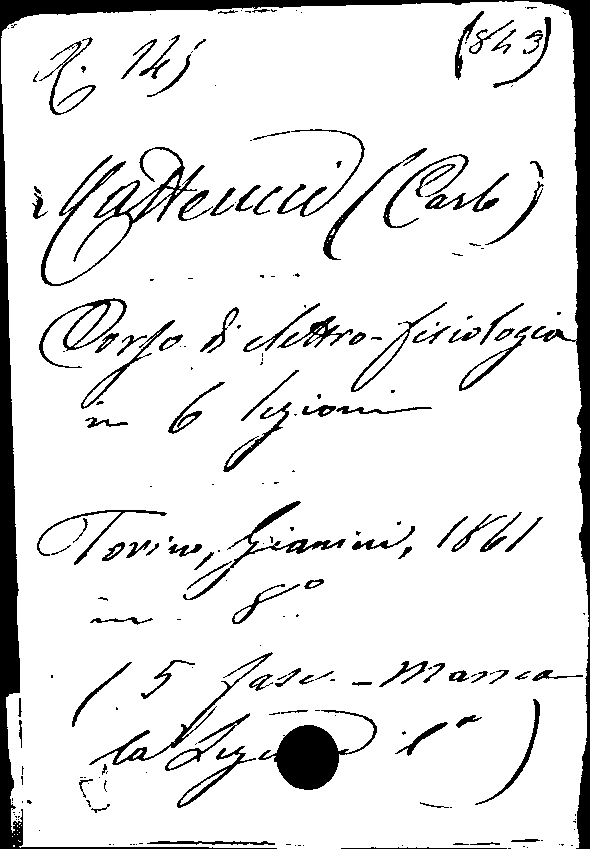 R. 145 (843)
Matteucci (Carlo)
Corso di elettro-fisiologia
in 6 lezioni
Torino, Gianini, 1861
in 8°
(5 fasc. - Manca
la Lezione 1ª)